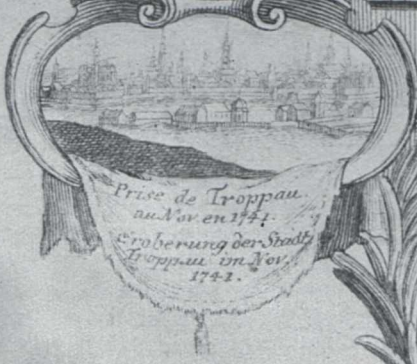 Prise de Troppau
au Nov. en 1741.
Eroberung der Stadt
Troppau im Nov.
1741.